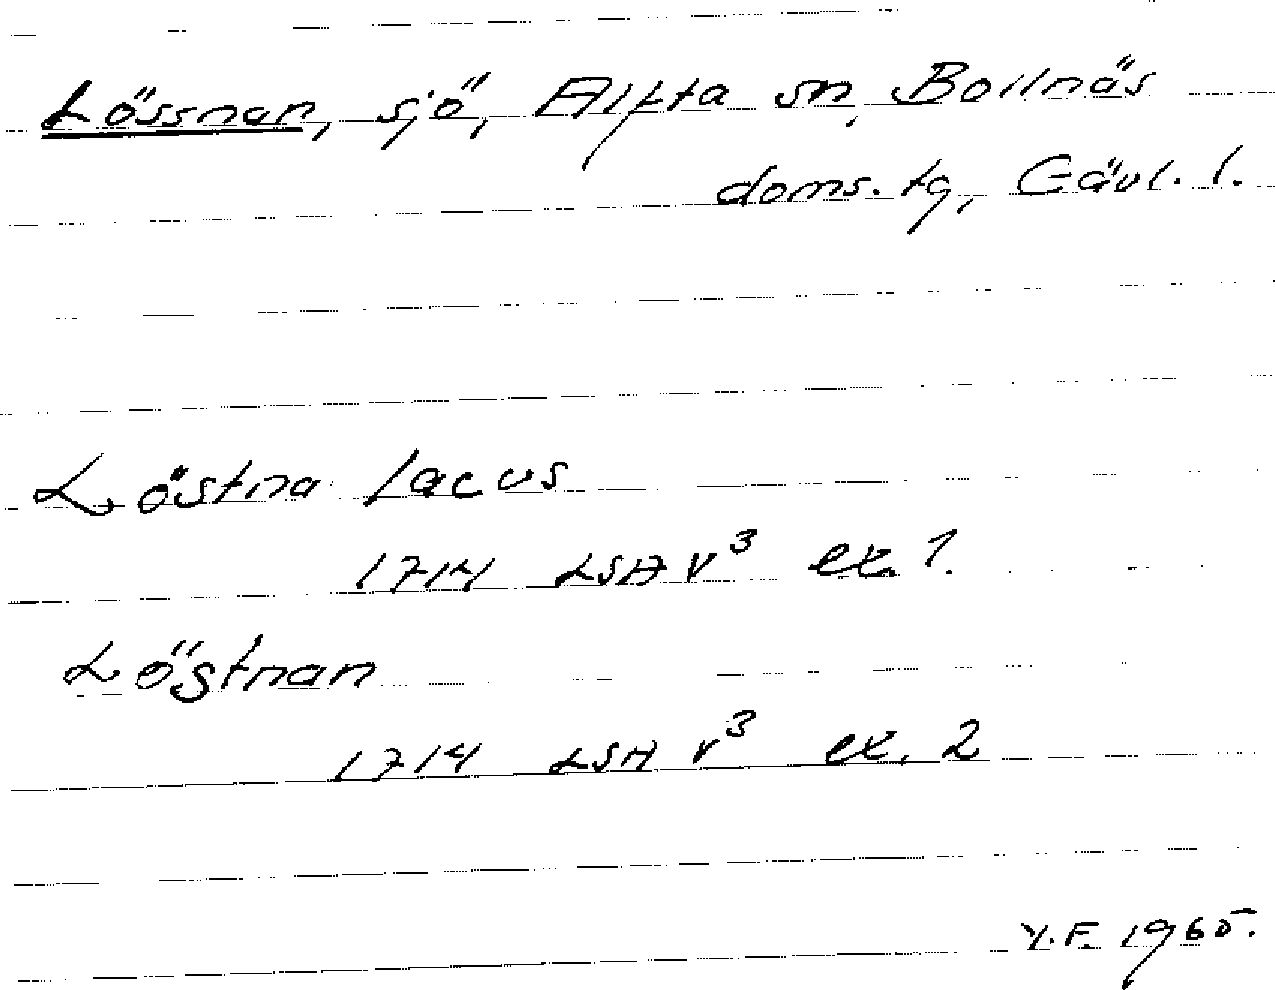 Lössnan, sjö, Alfta sn, Bollnäs
doms. tg, Gävl. l.
Löstna lacus
1714 LSA V³ ex. 1.
Löstnan
1714 LSA V³ ex. 2
Y.F. 1965.